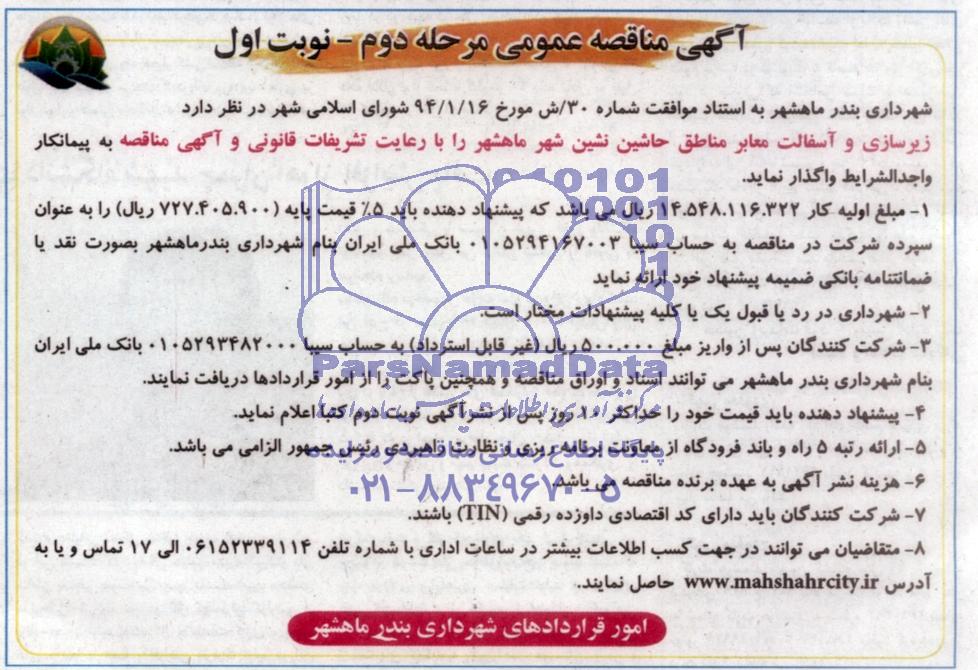 آگهی مناقصه عمومی مرحله دوم - نوبت اول
شهرداری بندر ماهشهر به استناد موافقت شماره ۳۰/ش مورخ ۹۴/۱/۱۶ شورای اسلامی شهر در نظر دارد
زیرسازی و آسفالت معابر مناطق حاشین نشین شهر ماهشهر را با رعایت تشریفات قانونی و آگهی مناقصه به پیمانکار
واجدالشرایط واگذار نماید.
۱- مبلغ اولیه کار ۱۴.۵۴۸.۱۱۶.۳۲۲ ریال می باشد که پیشنهاد دهنده باید ۵٪ قیمت پایه (۷۲۷.۴۰۵.۹۰۰ ریال) را به عنوان
سپرده شرکت در مناقصه به حساب سیبا ۰۱۰۵۲۹۴۱۶۷۰۰۳ بانک ملی ایران بنام شهرداری بندرماهشهر بصورت نقد یا
ضمانتنامه بانکی ضمیمه پیشنهاد خود ارائه نماید
۲- شهرداری در رد یا قبول یک یا کلیه پیشنهادات مختار است.
۳- شرکت کنندگان پس از واریز مبلغ ۵۰۰.۰۰۰ ریال (غیر قابل استرداد) به حساب سیبا ۰۱۰۵۲۹۳۴۸۲۰۰۰ بانک ملی ایران
بنام شهرداری بندر ماهشهر می توانند اسناد و اوراق مناقصه و همچنین پاکت را از امور قراردادها دریافت نمایند.
۴- پیشنهاد دهنده باید قیمت خود را حداکثر ۱۰ روز پس از نشر آگهی نوبت دوم کتبا اعلام نماید.
۵- ارائه رتبه ۵ راه و باند فرودگاه از معاونت برنامه ریزی و نظارت راهبردی رئیس جمهور الزامی می باشد.
۶- هزینه نشر آگهی به عهده برنده مناقصه می باشد.
۷- شرکت کنندگان باید دارای کد اقتصادی داوزده رقمی (TIN) باشند.
۸- متقاضیان می توانند در جهت کسب اطلاعات بیشتر در ساعات اداری با شماره تلفن ۰۶۱۵۲۳۳۹۱۱۴ الی ۱۷ تماس و یا به
آدرس www.mahshahrcity.ir حاصل نمایند.
امور قراردادهای شهرداری بندر ماهشهر
ParsNamadData
پایگاه اطلاع رسانی مناقصه و مزایده
۰۲۱-۸۸۳۴۹۶۷۰-۵